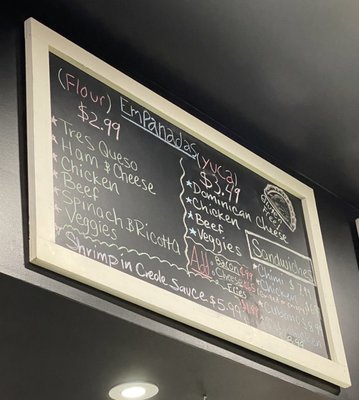 Empanadas
(Flour)
$2.99
* Tres Queso
* Ham & Cheese
* Chicken
* Beef
* Spinach & Ricotta
* Veggies
* Shrimp in Creole Sauce $5.99
(yuca)
$3.49
* Dominican Cheese
* Chicken
* Beef
* Veggies
Add
Bacon
Cheese
Eggs
Gluten Free
Sandwiches
* Chimi $7.99
* Chicken
* Cuban